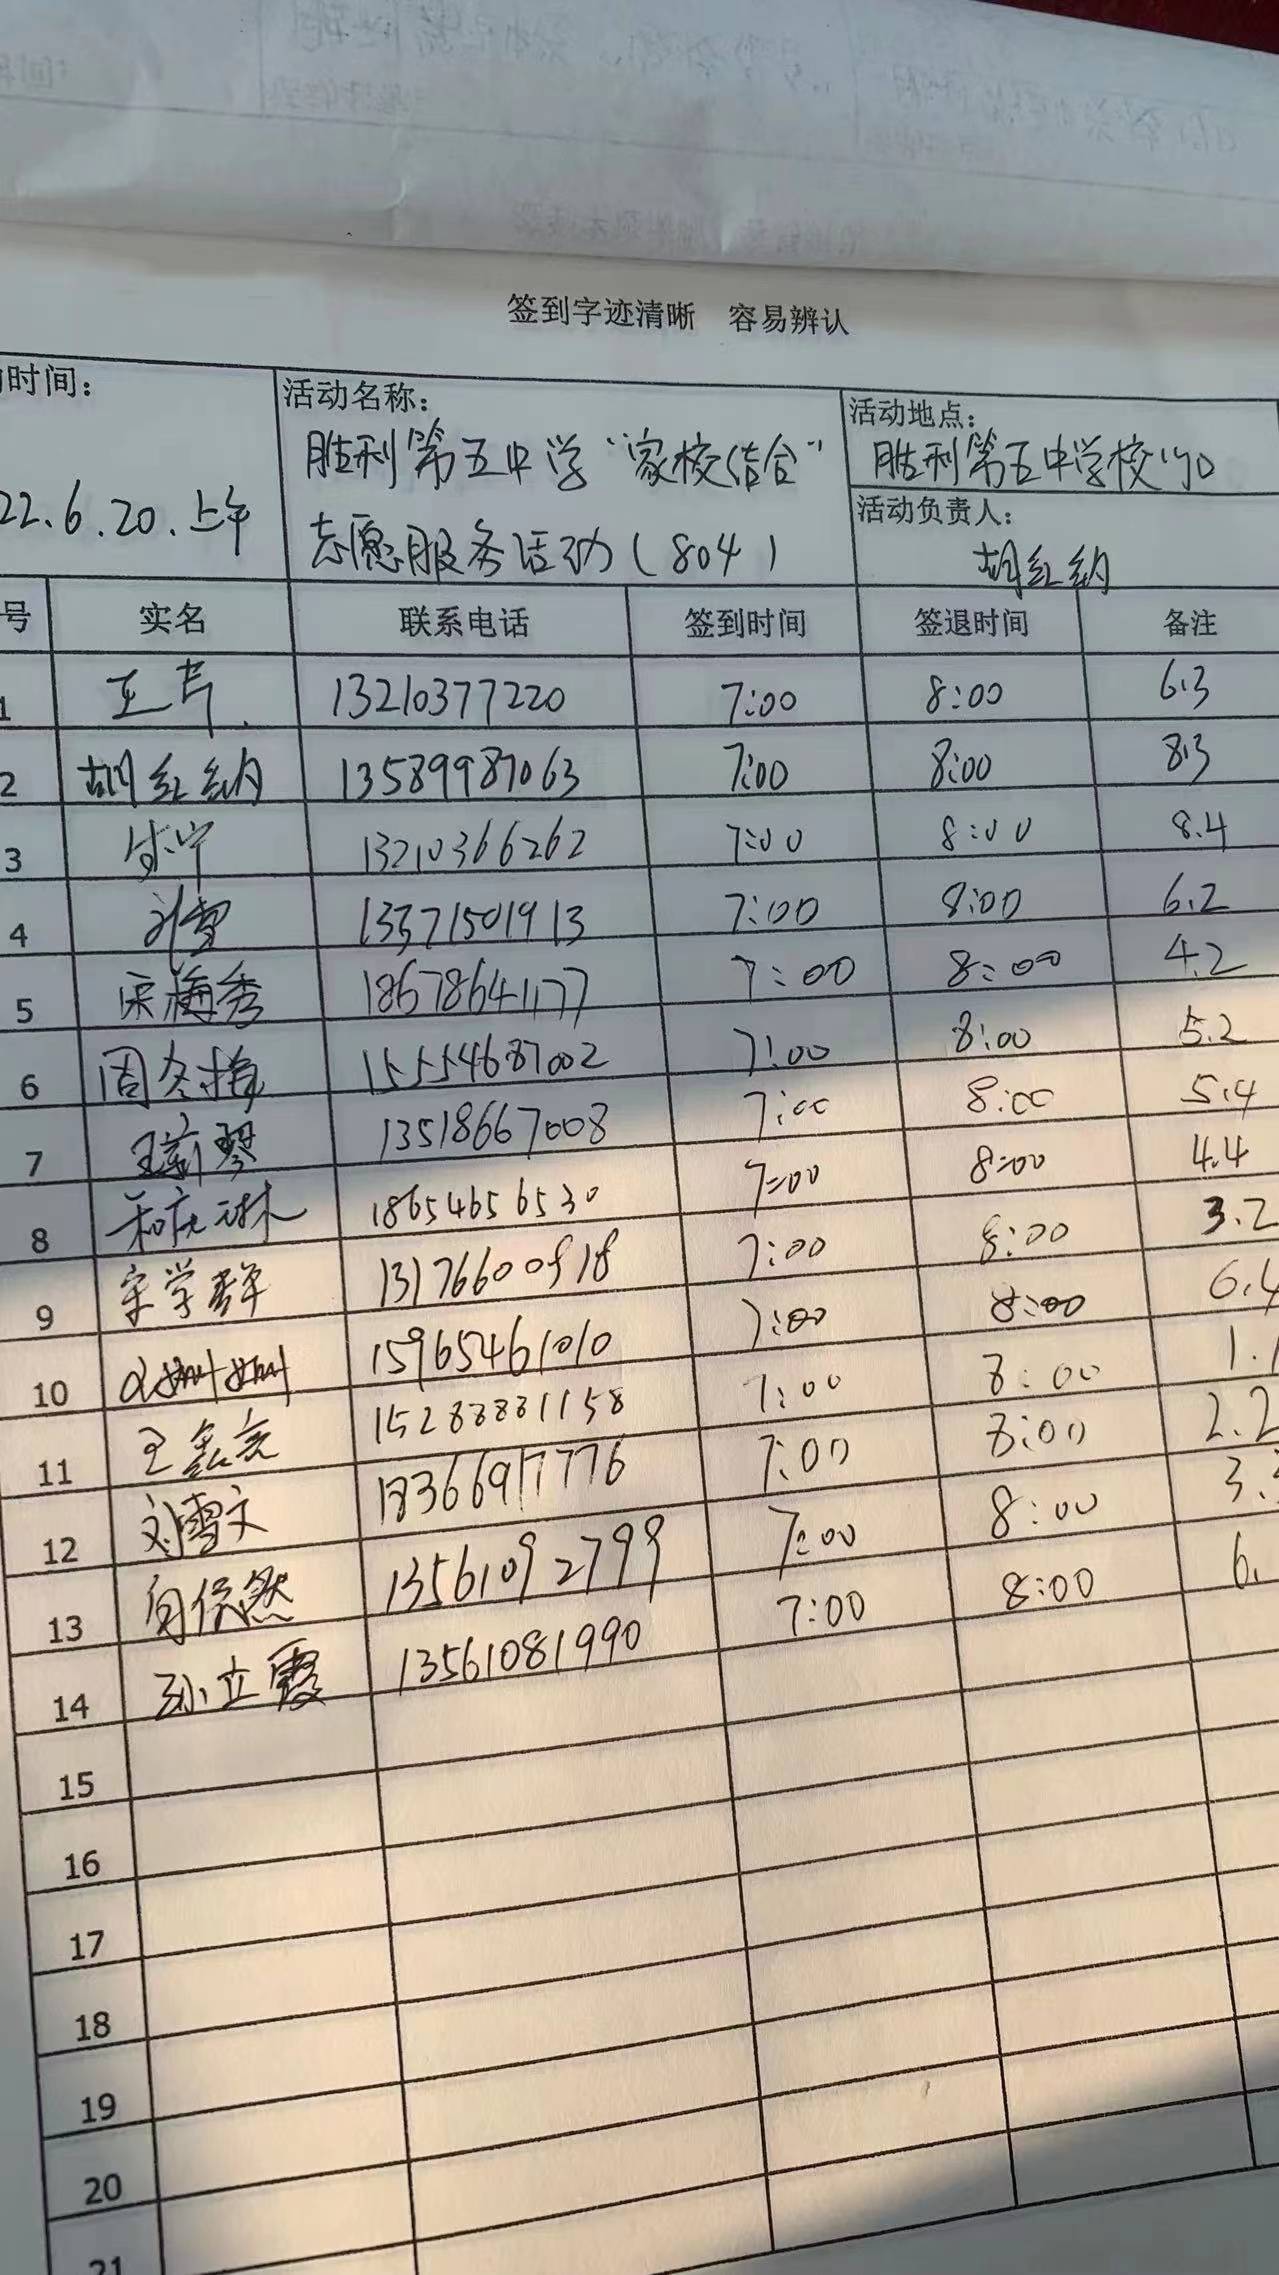 签到字迹清晰 容易辨认
时间：
22.6.20.上午
活动名称：
胜利第五中学“家校结合”
志愿服务活动（804）
活动地点：
胜利第五中学校门口
活动负责人：
胡红纳
号 实名 联系电话 签到时间 签退时间 备注
1 王芹 13210377220 7:00 8:00 6.3
2 胡红纳 13589987063 7:00 8:00 8.3
3 13210366262 7:00 8:00 8.4
4 刘雪 13371501913 7:00 8:00 6.2
5 宋梅秀 18678641177 7:00 8:00 4.2
6 周冬梅 15554687002 7:00 8:00 5.2
7 王新琴 13518667008 7:00 8:00 5.4
8 18654656530 7:00 8:00 4.4
9 宋学群 13176600918 7:00 8:00 3.2
10 姗姗 15965461010 7:00 8:00 6.4
11 王鑫亮 15288881158 7:00 8:00 1.1
12 刘雪文 18366917776 7:00 8:00 2.2
13 13561092799 7:00 8:00 3.
14 孙立霞 13561081990 7:00 8:00 6.
15
16
17
18
19
20
21